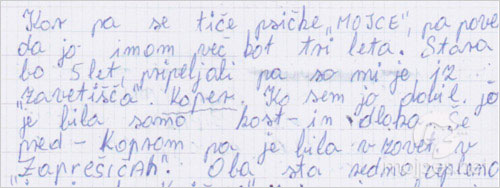 Kor pa se tiče psičke „MOJCE", pa pove
da jo imom več kot tri leta. Stara
bo 5 let, pripeljali pa so mi je iz
„zavetišča". Koper. Ko sem jo dobil. jo
je bila samo kost - in dloka. Še
pred - Koprom pa je bila v zavet. v
„ZAPREŠIČAH". Oba sta redno cepljeno